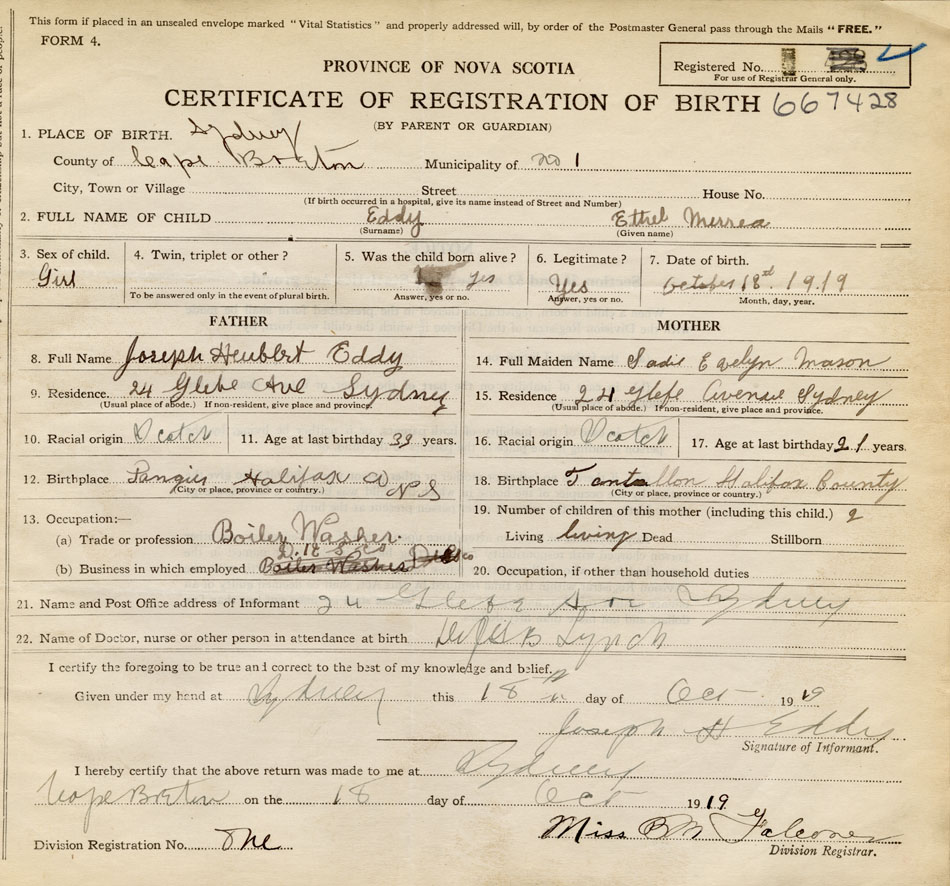 This form if placed in an unsealed envelope marked "Vital Statistics" and properly addressed will, by order of the Postmaster General pass through the Mails "FREE."
FORM 4.
Registered No.
For use of Registrar General only.
PROVINCE OF NOVA SCOTIA
CERTIFICATE OF REGISTRATION OF BIRTH 667428
(BY PARENT OR GUARDIAN)
1. PLACE OF BIRTH. Sydney
County of Cape Breton Municipality of no 1
City, Town or Village Street House No.
(If birth occurred in a hospital, give its name instead of Street and Number)
2. FULL NAME OF CHILD Eddy Ethel
(Surname) (Given name)
3. Sex of child. 4. Twin, triplet or other? 5. Was the child born alive? 6. Legitimate? 7. Date of birth.
Girl yes Yes October 18 1919
To be answered only in the event of plural birth. Answer, yes or no. Answer, yes or no. Month, day, year.
FATHER
8. Full Name Joseph Heubbert Eddy
9. Residence. 24 Glebe Ave Sydney
(Usual place of abode.) If non-resident, give place and province.
10. Racial origin Scotch 11. Age at last birthday 39 years.
12. Birthplace Halifax Co N S
(City or place, province or country.)
13. Occupation:—
(a) Trade or profession Boiler Washer.
(b) Business in which employed
MOTHER
14. Full Maiden Name Sadie Evelyn Mason
15. Residence 24 Glebe Avenue Sydney
(Usual place of abode.) If non-resident, give place and province.
16. Racial origin Scotch 17. Age at last birthday 21 years.
18. Birthplace Tantallon Halifax County
(City or place, province or country.)
19. Number of children of this mother (including this child.) 2
Living living Dead Stillborn
20. Occupation, if other than household duties
21. Name and Post Office address of Informant 24 Glebe Ave Sydney
22. Name of Doctor, nurse or other person in attendance at birth Lynch
I certify the foregoing to be true and correct to the best of my knowledge and belief.
Given under my hand at Sydney this 18 th day of Oct 1919
Joseph H Eddy
Signature of Informant.
I hereby certify that the above return was made to me at Sydney
Cape Breton on the 18 day of Oct 1919
Miss B M Falconer
Division Registration No. One
Division Registrar.